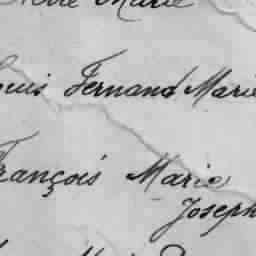 Marie
Louis Fernand Marie
François Marie
Joseph